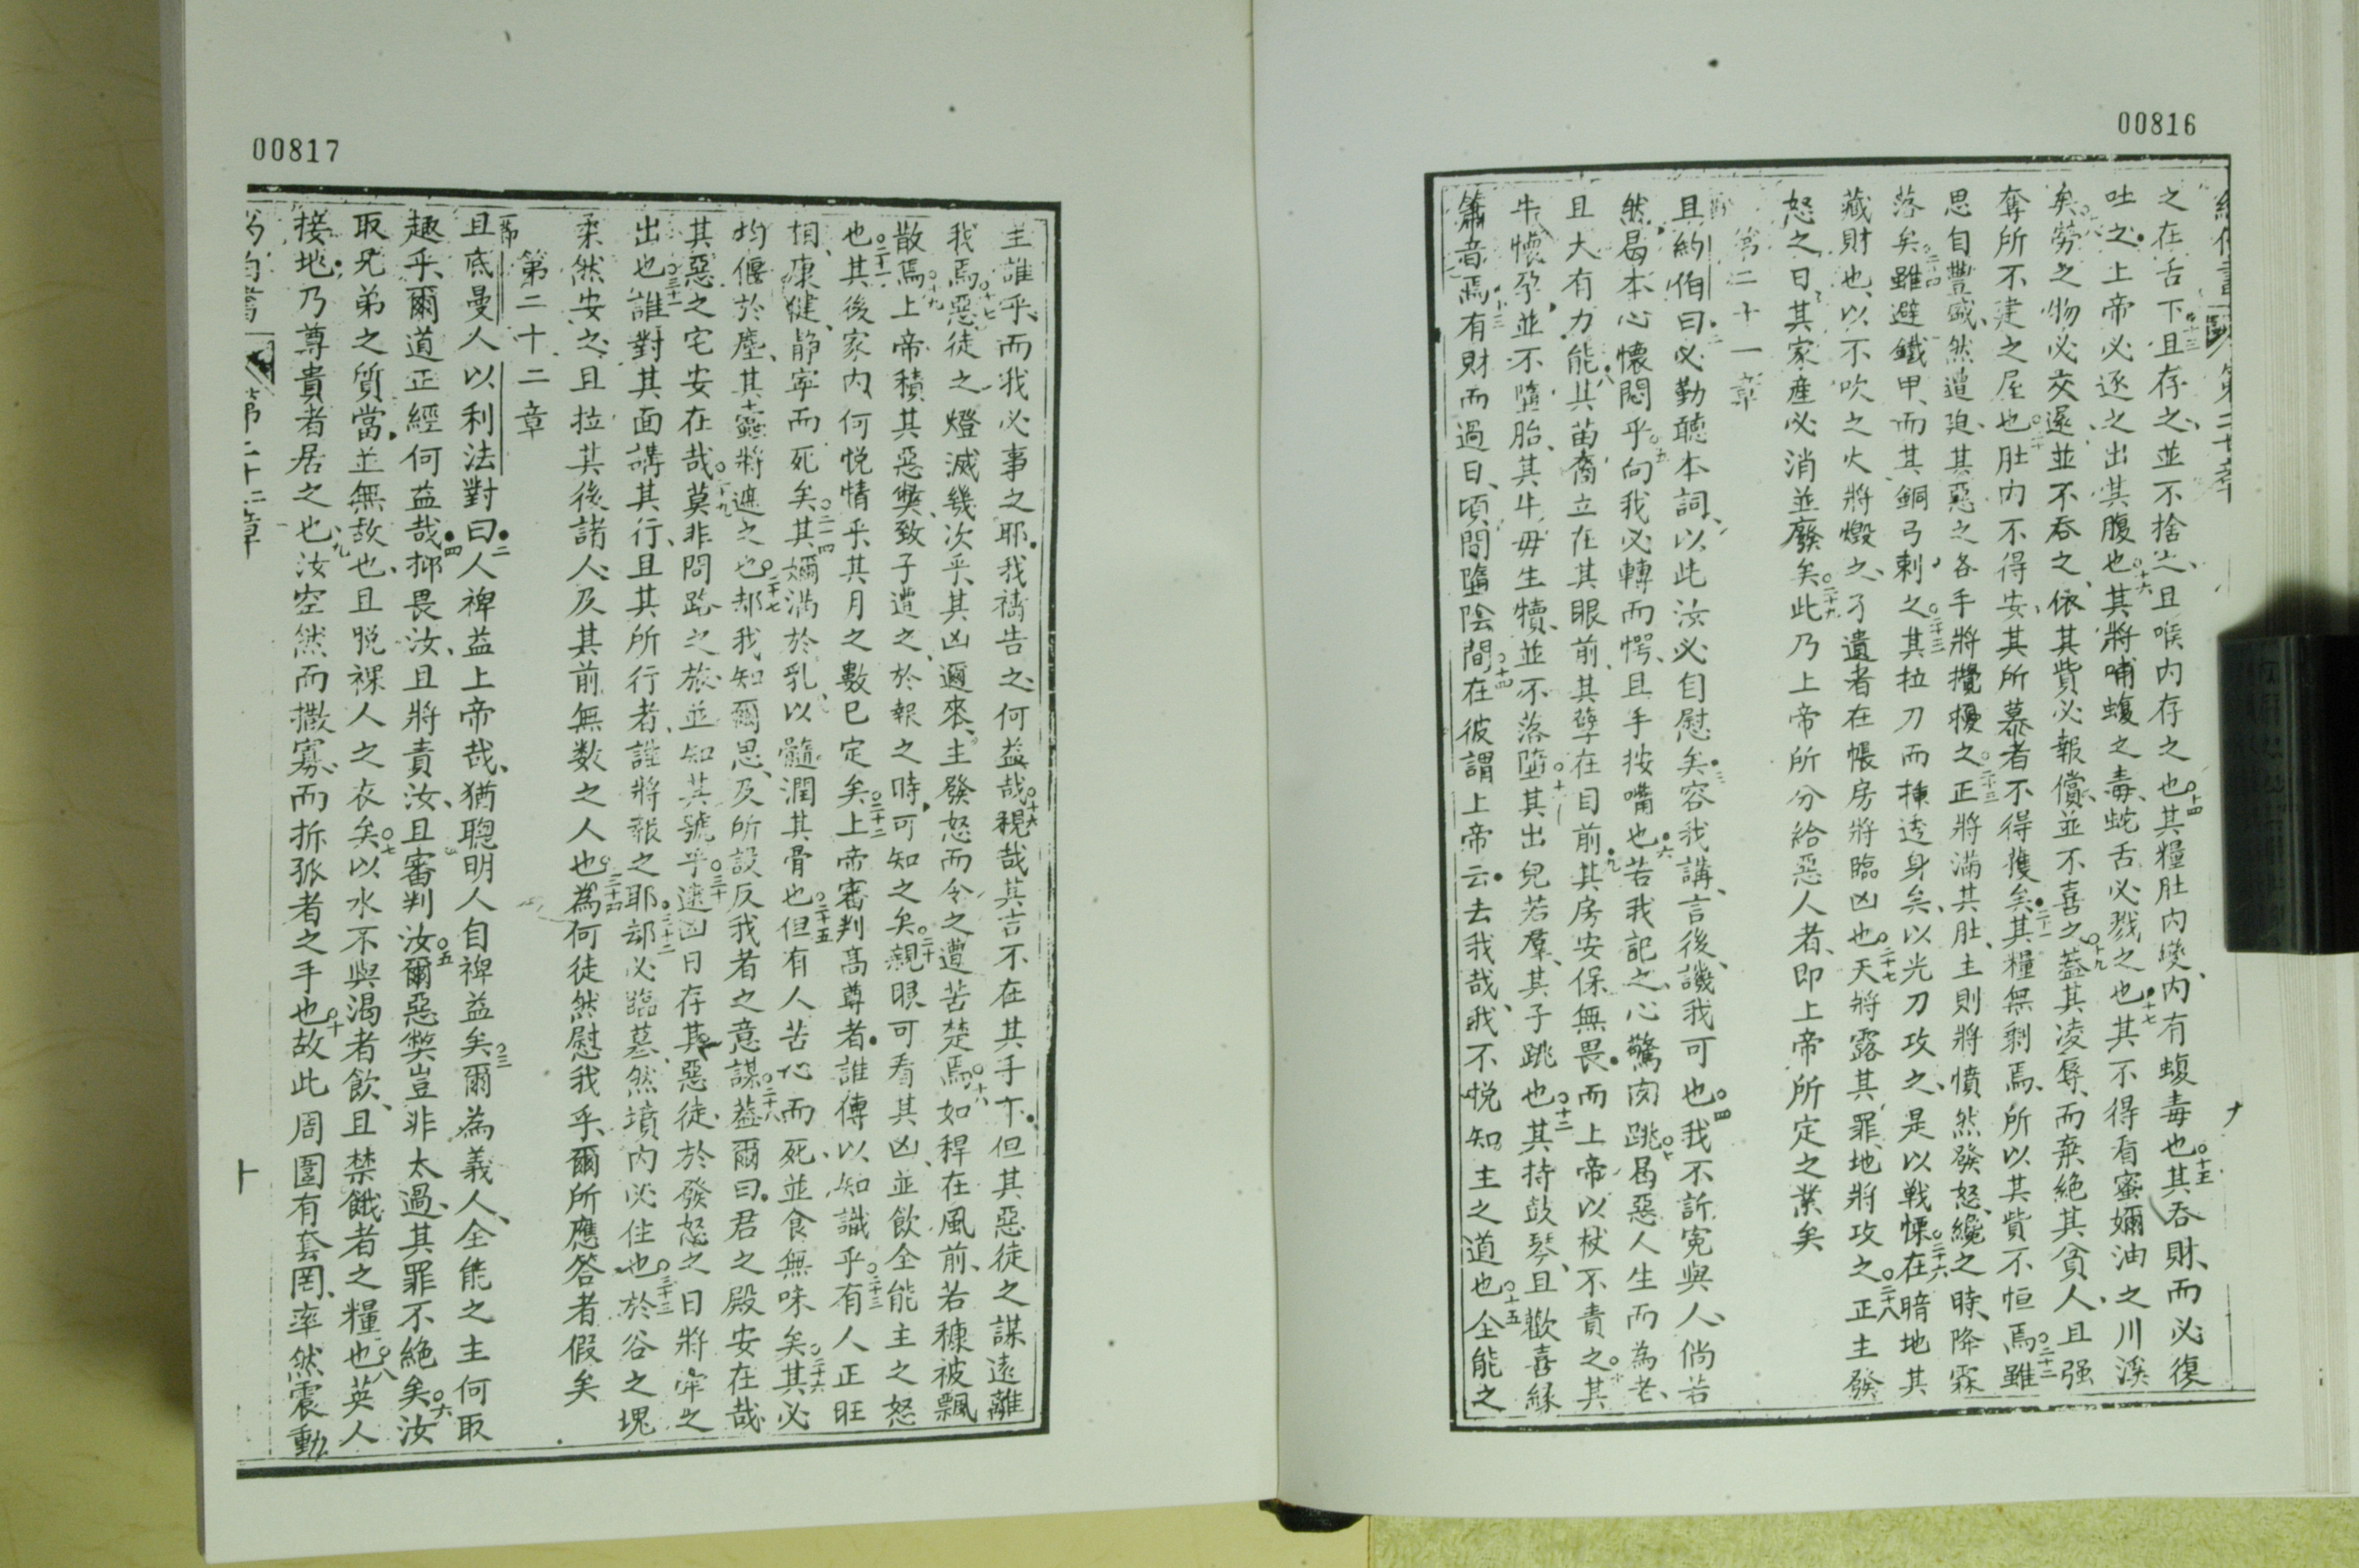 00816
之在舌下且存之並不捨之且喉內存之也十四其糧肚內變內有蝮毒也十五其吞財而必復
吐之上帝必逐之出其腹也十六其將哺蝮之毒蛇舌必戮之也十七其不得看蜜嬭油之川溪
矣十八勞之物必交還並不吞之依其貲必報償並不喜之十九蓋其凌辱而棄絕其貧人且强
奪所不建之屋也二十肚內不得安其所慕者不得獲矣二十一其糧無剩焉所以其貲不恒焉二十二雖
思自豐盛然遭迫其惡之各手將攪擾之二十三正將滿其肚主則將憤然發怒纔之時降霖
落矣二十四雖避鐵甲而其銅弓刺之二十五其拉刀而揰透身矣以光刀攻之是以戰慄二十六在暗地其
藏財也以不吹之火將燬之孑遺者在帳房將臨凶也二十七天將露其罪地將攻之二十八正主發
怒之日其家產必消並廢矣二十九此乃上帝所分給惡人者即上帝所定之業矣
第二十一章
且約伯曰二必勤聽本詞以此汝必自慰矣三容我講言後譏我可也四我不訴寃與人倘若
然曷本心懷悶乎五向我必轉而愕且手按嘴也六若我記之心驚肉跳七曷惡人生而為老
且大有力能八其苗裔立在其眼前其孽在目前九其房安保無畏而上帝以杖不責之十其
牛懷孕並不墮胎其牛毋生犢並不落墮十一其出兒若羣其子跳也十二其持鼓琴且歡喜緣
簫音焉十三有財而過日頃間墮陰間十四在彼謂上帝云去我哉我不悅知主之道也十五全能之
00817
主誰乎而我必事之耶我禱告之何益哉十六視哉其吉不在其手下但其惡徒之謀遠離
我焉十七惡徒之燈滅幾次乎其凶邇來主發怒而令之遭苦楚焉十八如稈在風前若糠被飄
散焉十九上帝積其惡獘致子遭之於報之時可知之矣二十親眼可看其凶並飲全能主之怒
也二十一其後家內何悅情乎其月之數已定矣二十二上帝審判高尊者誰傳以知識乎二十三有人正旺
相康健靜寧而死矣二十四其嬭滿於乳以髓潤其骨也二十五但有人苦心而死並食無味矣二十六其必
均偃於塵其蟲將遮之也二十七却我知爾思及所設反我者之意謀二十八葢爾曰君之殿安在哉
其惡之宅安在哉二十九莫非問路之旅並知其號乎三十遠凶日存其惡徒於發怒之日將牢之
出也三十一誰對其面講其行且其所行者誰將報之耶三十二却必臨墓然墳內必住也三十三於谷之塊
柔然安之且拉其後諸人及其前無数之人也三十四為何徒然慰我乎爾所應答者假矣
第二十二章
且底曼人以利法對曰二人裨益上帝哉猶聰明人自裨益矣三爾為義人全能之主何取
趣乎爾道正經何益哉四抑畏汝且將責汝且審判汝五爾惡獘豈非太過其罪不絕矣六汝
取兄弟之質當並無故也且脫裸人之衣矣七以水不與渴者飲且禁餓者之糧也八英人
接地乃尊貴者居之也九汝空然而撒寡而折孤者之手也十故此周圍有套罔率然震動
第二十二章